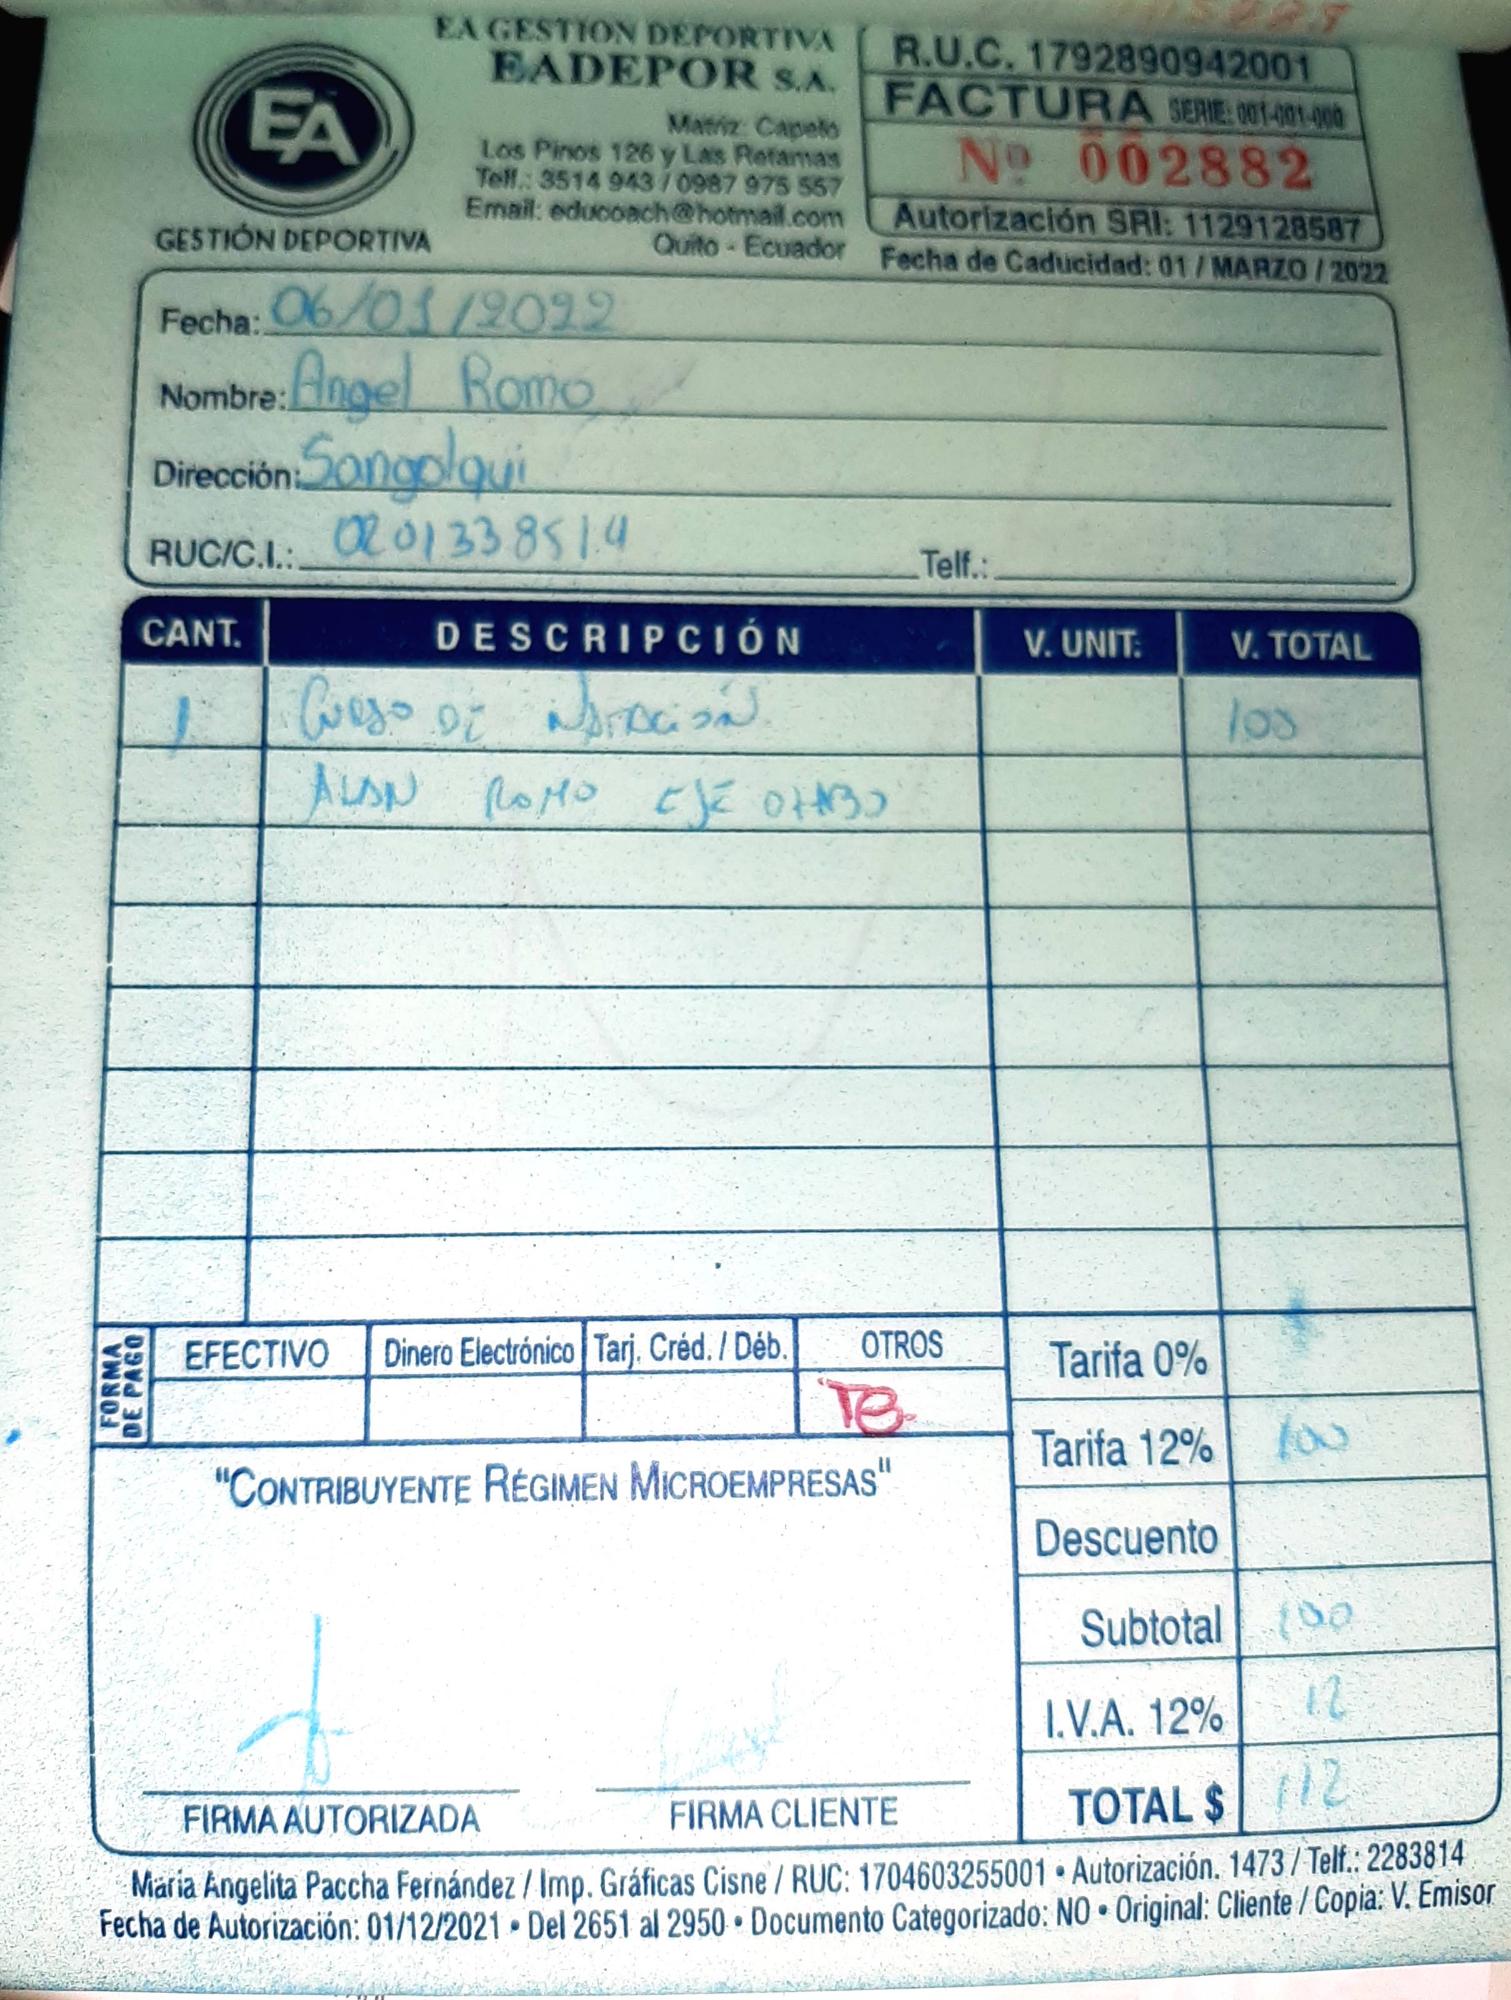 EA GESTION DEPORTIVA
EADEPOR S.A.
EA
GESTIÓN DEPORTIVA
Matriz: Capelo
Los Pinos 126 y Las Retamas
Telf.: 3514 943 / 0987 975 557
Email: educoach@hotmail.com
Quito - Ecuador
R.U.C. 1792890942001
FACTURA SERIE: 001-001-000
Nº 002882
Autorización SRI: 1129128587
Fecha de Caducidad: 01 / MARZO / 2022
Fecha: 06/01/2022
Nombre: Angel Romo
Dirección: Sangolqui
RUC/C.I.: 0201338514 Telf.:
CANT. DESCRIPCIÓN V. UNIT. V. TOTAL
1 Curso DE natación 100
ALAN ROMO
FORMA DE PAGO
EFECTIVO Dinero Electrónico Tarj. Créd. / Déb. OTROS
TB.
Tarifa 0%
Tarifa 12% 100
Descuento
Subtotal 100
I.V.A. 12% 12
TOTAL $ 112
"CONTRIBUYENTE RÉGIMEN MICROEMPRESAS"
FIRMA AUTORIZADA FIRMA CLIENTE
María Angelita Paccha Fernández / Imp. Gráficas Cisne / RUC: 1704603255001 • Autorización. 1473 / Telf.: 2283814
Fecha de Autorización: 01/12/2021 • Del 2651 al 2950 • Documento Categorizado: NO • Original: Cliente / Copia: V. Emisor